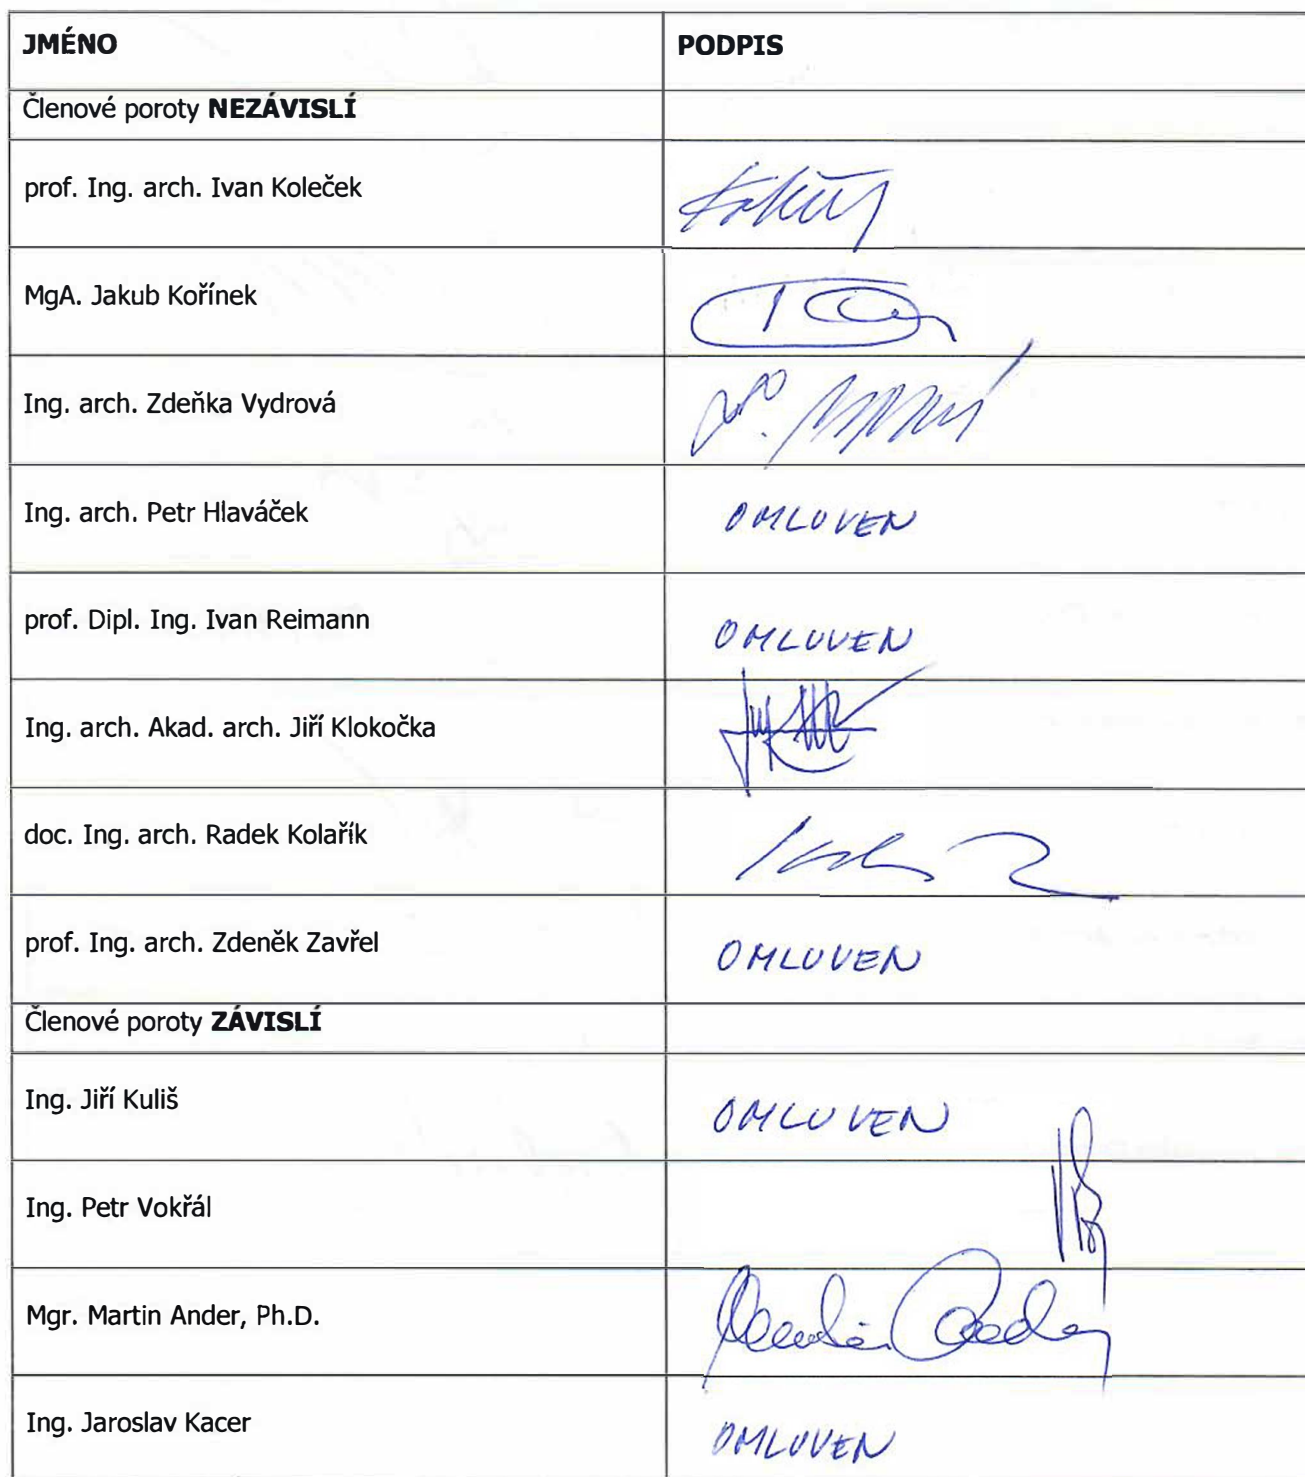 JMÉNO PODPIS
Členové poroty NEZÁVISLÍ
prof. Ing. arch. Ivan Koleček
MgA. Jakub Kořínek
Ing. arch. Zdeňka Vydrová
Ing. arch. Petr Hlaváček OMLUVEN
prof. Dipl. Ing. Ivan Reimann OMLUVEN
Ing. arch. Akad. arch. Jiří Klokočka
doc. Ing. arch. Radek Kolařík
prof. Ing. arch. Zdeněk Zavřel OMLUVEN
Členové poroty ZÁVISLÍ
Ing. Jiří Kuliš OMLUVEN
Ing. Petr Vokřál
Mgr. Martin Ander, Ph.D.
Ing. Jaroslav Kacer OMLUVEN